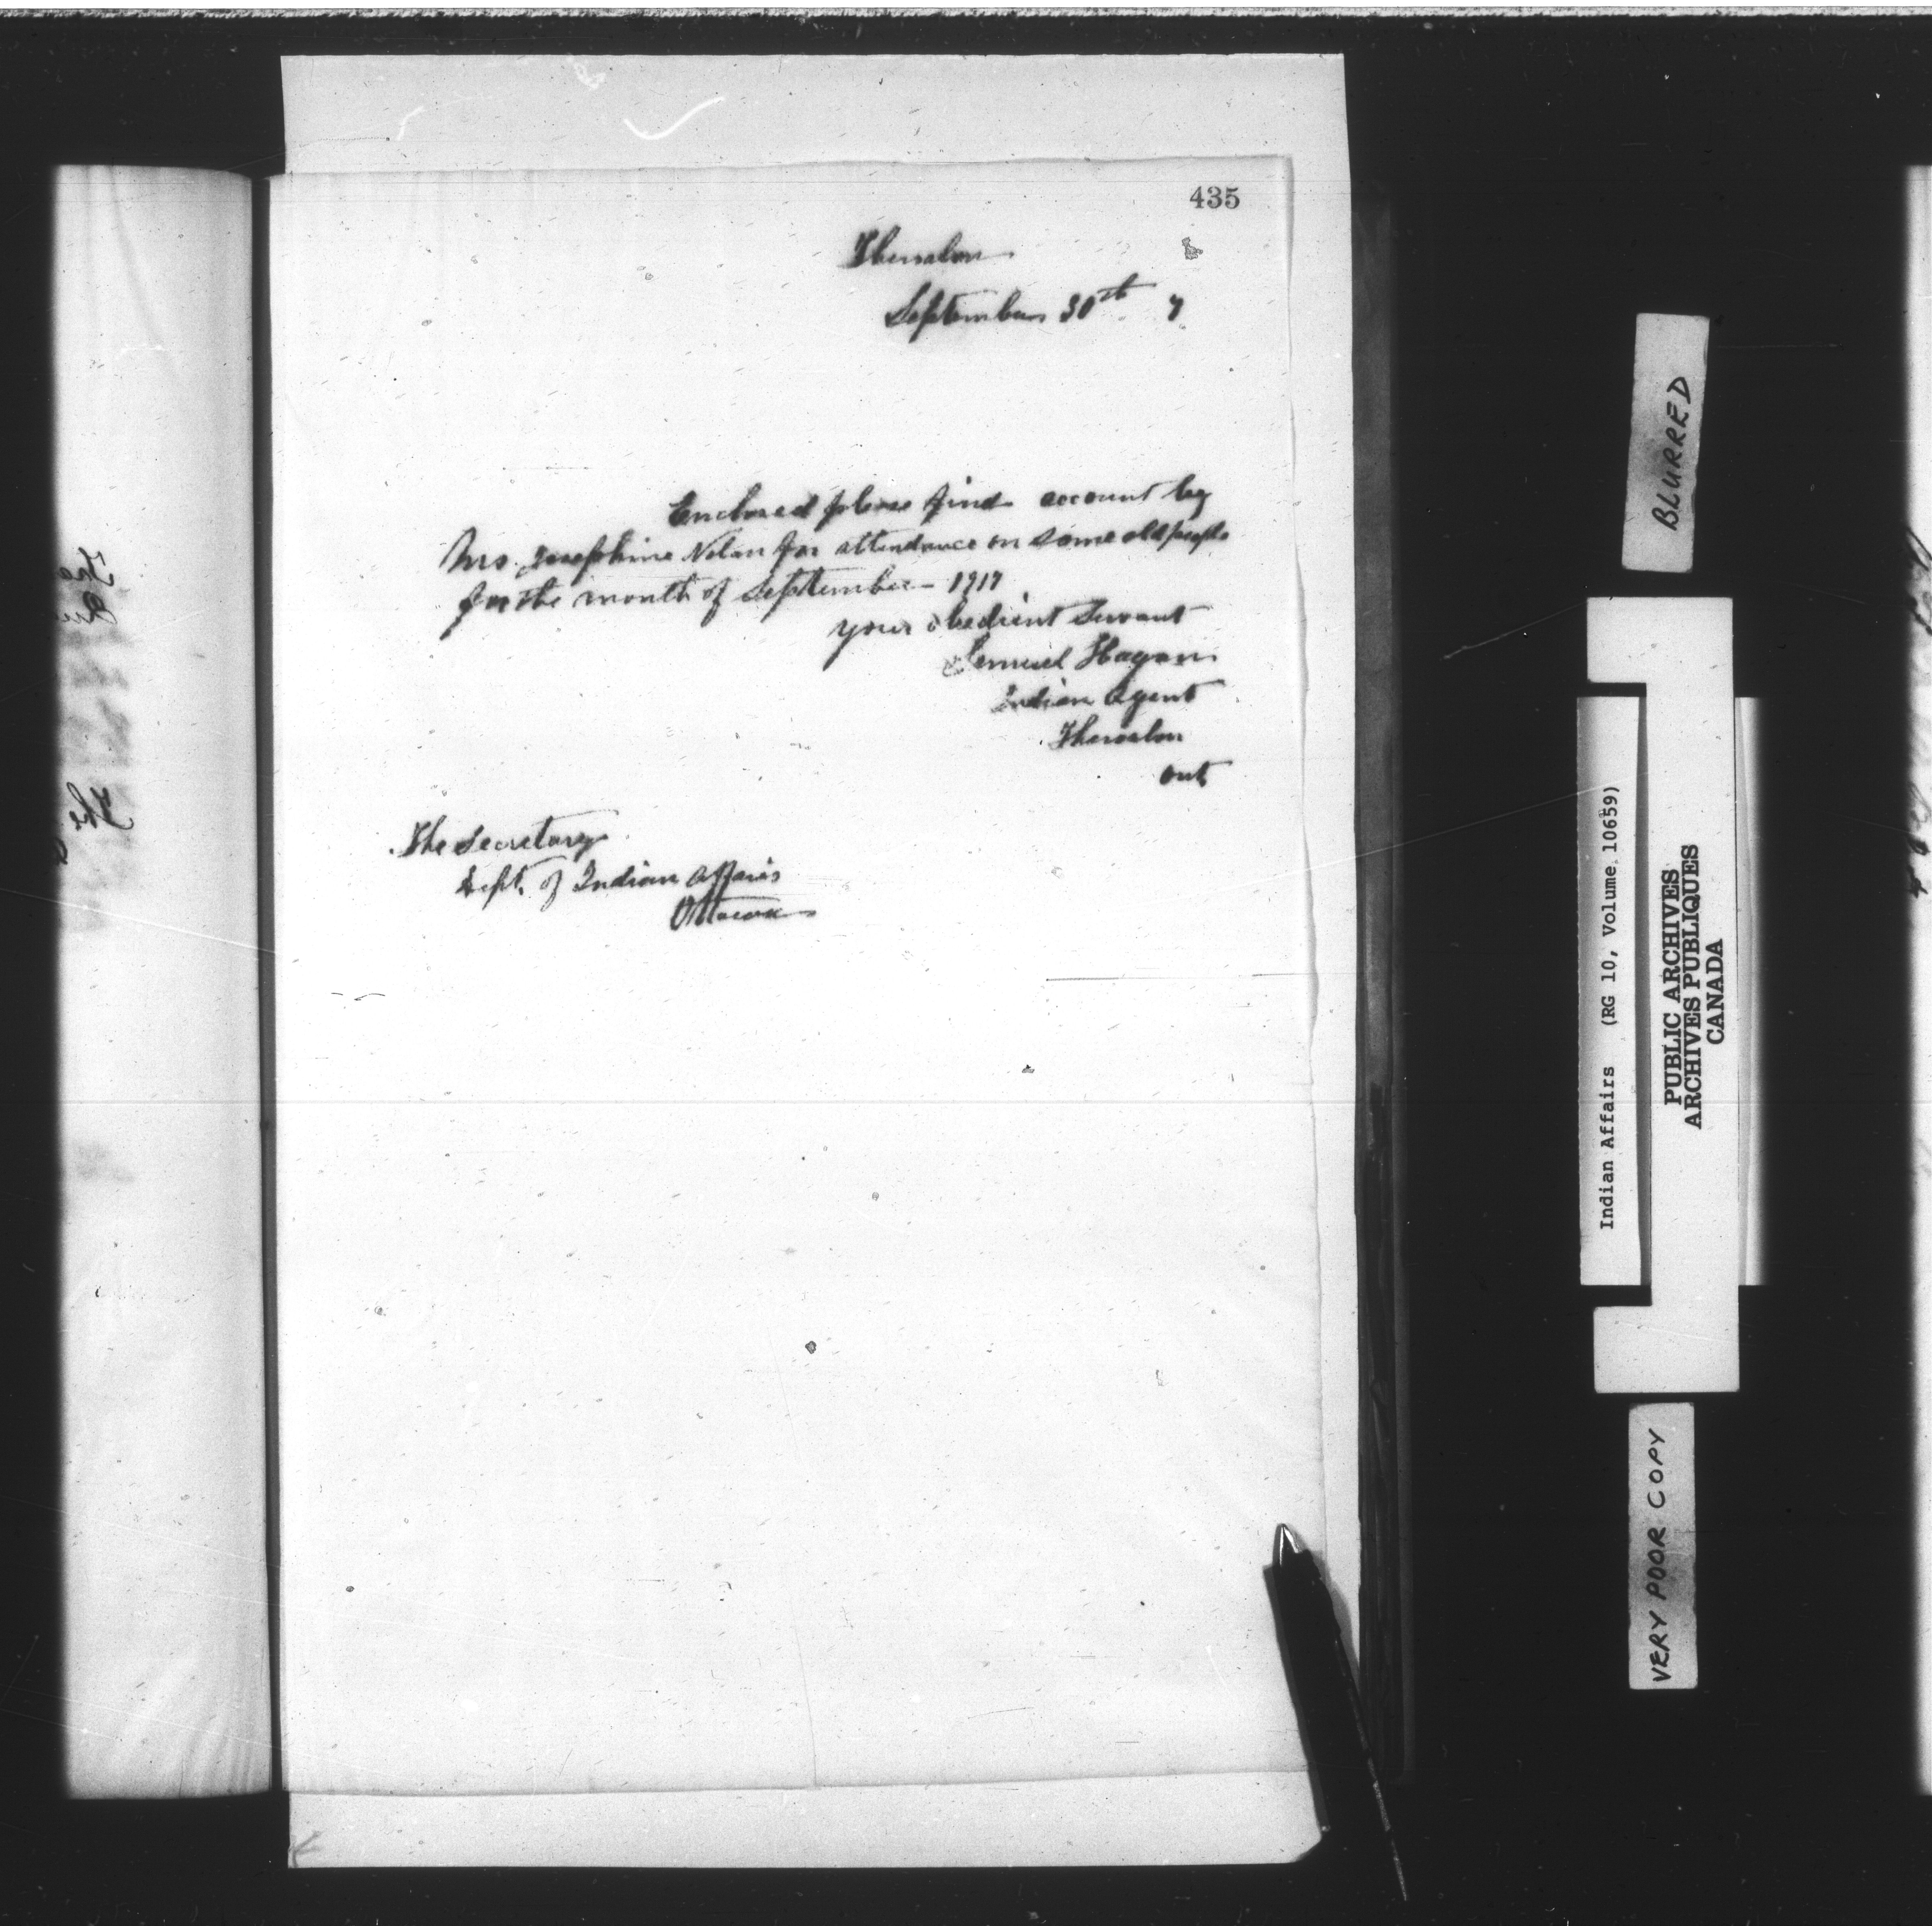 435
Thessalon
September 30th 7
Enclosed please find account by
Mrs. Josephine Nolan for attendance on some old people
for the month of September 1917
your obedient Servant
Samuel Hagan
Indian Agent
Thessalon
Ont
The Secretary
Dept. of Indian Affairs
Ottawa
BLURRED
Indian Affairs (RG 10, Volume 10659)
PUBLIC ARCHIVES
ARCHIVES PUBLIQUES
CANADA
VERY POOR COPY